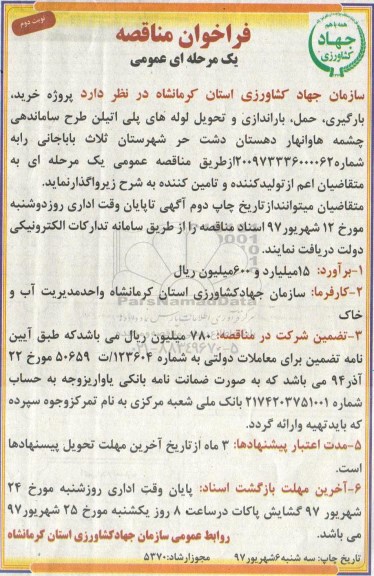 نوبت دوم
همه با هم
جهاد
کشاورزی
فراخوان مناقصه
یک مرحله ای عمومی
سازمان جهاد کشاورزی استان کرمانشاه در نظر دارد پروژه خرید،
بارگیری، حمل، باراندازی و تحویل لوله های پلی اتیلن طرح ساماندهی
چشمه هاوانهار دهستان دشت حر شهرستان ثلاث باباجانی رابه
شماره۲۰۰۹۷۳۳۳۶۰۰۰۰۶۲ازطریق مناقصه عمومی یک مرحله ای به
متقاضیان اعم ازتولیدکننده و تامین کننده به شرح زیرواگذارنماید.
متقاضیان میتوانندازتاریخ چاپ دوم آگهی تاپایان وقت اداری روزدوشنبه
مورخ ۱۲ شهریور ۹۷ اسناد مناقصه را از طریق سامانه تدارکات الکترونیکی
دولت دریافت نمایند.
۱-برآورد: ۱۵میلیارد و ۶۰۰میلیون ریال
۲-کارفرما: سازمان جهادکشاورزی استان کرمانشاه واحدمدیریت آب و
خاک
۳-تضمین شرکت در مناقصه: ۷۸۰ میلیون ریال می باشدکه طبق آیین
نامه تضمین برای معاملات دولتی به شماره ۱۲۳۶۰۴/ت ۵۰۶۵۹ مورخ ۲۲
آذر۹۴ می باشد که به صورت ضمانت نامه بانکی یاواریزوجه به حساب
شماره ۲۱۷۴۲۰۳۷۵۱۰۰۱ بانک ملی شعبه مرکزی به نام تمرکزوجوه سپرده
که بایدتهیه وارائه گردد.
۵-مدت اعتبار پیشنهادها: ۳ ماه ازتاریخ آخرین مهلت تحویل پیسنهادها
است.
۶-آخرین مهلت بازگشت اسناد: پایان وقت اداری روزشنبه مورخ ۲۴
شهریور ۹۷ گشایش پاکات درساعت ۸ روز یکشنبه مورخ ۲۵ شهریور ۹۷
می باشد.
روابط عمومی سازمان جهادکشاورزی استان کرمانشاه
تاریخ چاپ: سه شنبه ۶شهریور ۹۷ مجوزارشاد:۵۳۷۰